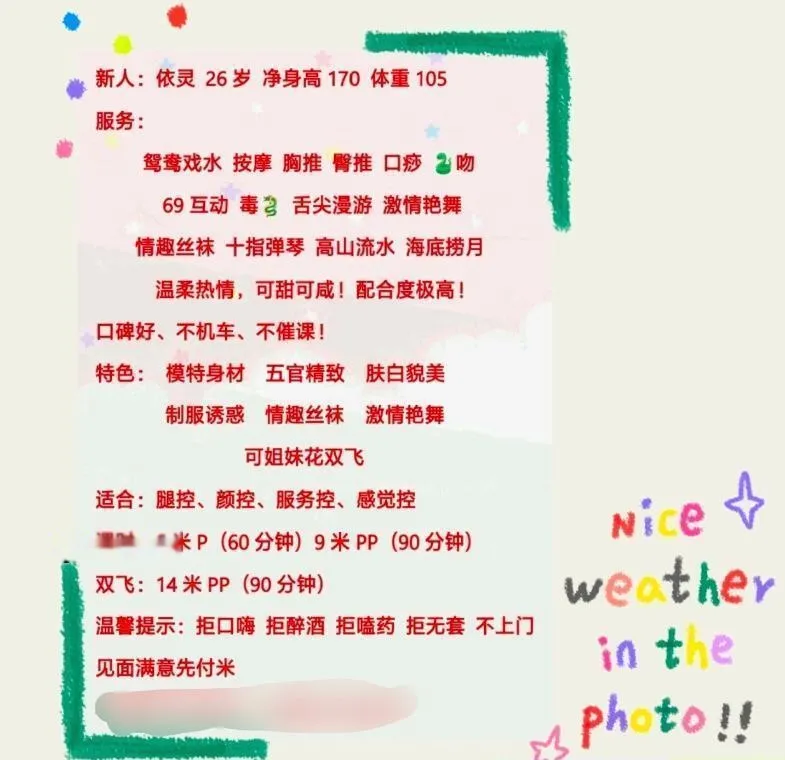 新人：依灵 26岁 净身高170 体重105
服务：
鸳鸯戏水 按摩 胸推 臀推 口痧 🐍吻
69互动 毒🐉 舌尖漫游 激情艳舞
情趣丝袜 十指弹琴 高山流水 海底捞月
温柔热情，可甜可咸！配合度极高！
口碑好、不机车、不催课！
特色： 模特身材 五官精致 肤白貌美
制服诱惑 情趣丝袜 激情艳舞
可姐妹花双飞
适合：腿控、颜控、服务控、感觉控
米P（60分钟）9米PP（90分钟）
双飞：14米PP（90分钟）
温馨提示：拒口嗨 拒醉酒 拒嗑药 拒无套 不上门
见面满意先付米
Nice
weather
in the
photo!!